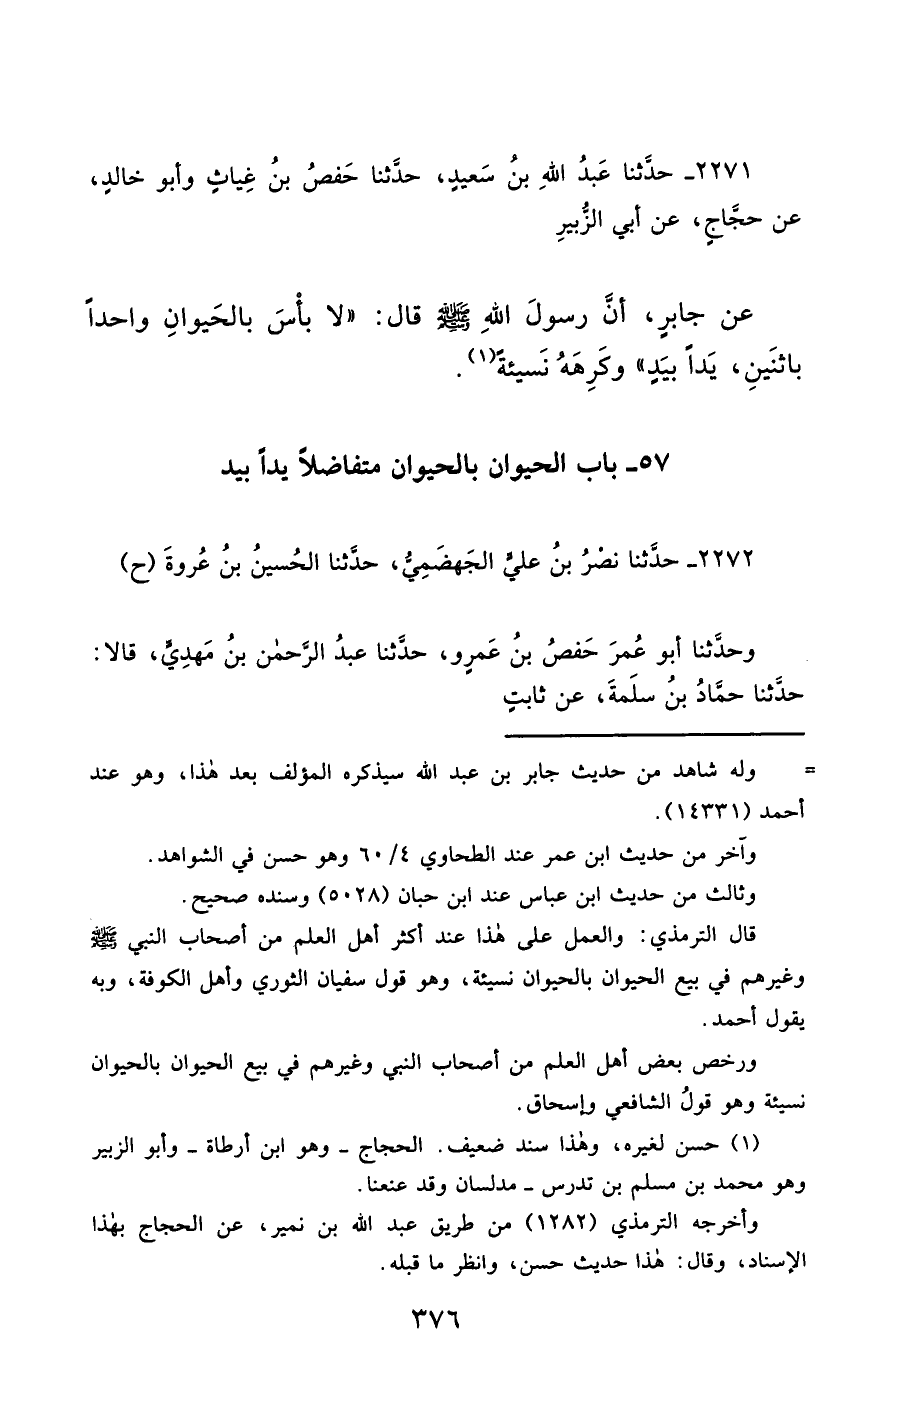 ٢٢٧١ـ حدَّثنا عَبدُ اللهِ بنُ سَعيدٍ، حدَّثنا حَفصُ بنُ غِياثٍ وأبو خالدٍ،
عن حجَّاجٍ، عن أبي الزُّبيرِ
عن جابرٍ، أنَّ رسولَ اللهِ ﷺ قال: «لا بأْسَ بالحَيوانِ واحداً
باثنَينِ، يَداً بيَدٍ» وكَرِهَهُ نَسيئةً(١).
٥٧ـ باب الحيوان بالحيوان متفاضلاً يداً بيد
٢٢٧٢ـ حدَّثنا نصْرُ بنُ عليٍّ الجَهضَمِيُّ، حدَّثنا الحُسينُ بنُ عُروةَ (ح)
وحدَّثنا أبو عُمرَ حَفصُ بنُ عَمرٍو، حدَّثنا عبدُ الرَّحمٰن بنُ مَهدِيٍّ، قالا:
حدَّثنا حمَّادُ بنُ سلَمةَ، عن ثابتٍ
= وله شاهد من حديث جابر بن عبد الله سيذكره المؤلف بعد هٰذا، وهو عند
أحمد (١٤٣٣١).
وآخر من حديث ابن عمر عند الطحاوي ٤/ ٦٠ وهو حسن في الشواهد.
وثالث من حديث ابن عباس عند ابن حبان (٥٠٢٨) وسنده صحيح.
قال الترمذي: والعمل على هٰذا عند أكثر أهل العلم من أصحاب النبي ﷺ
وغيرهم في بيع الحيوان بالحيوان نسيئة، وهو قول سفيان الثوري وأهل الكوفة، وبه
يقول أحمد.
ورخص بعض أهل العلم من أصحاب النبي وغيرهم في بيع الحيوان بالحيوان
نسيئة وهو قولُ الشافعي وإسحاق.
(١) حسن لغيره، وهٰذا سند ضعيف. الحجاج ـ وهو ابن أرطاة ـ وأبو الزبير
وهو محمد بن مسلم بن تدرس ـ مدلسان وقد عنعنا.
وأخرجه الترمذي (١٢٨٢) من طريق عبد الله بن نمير، عن الحجاج بهٰذا
الإسناد، وقال: هٰذا حديث حسن، وانظر ما قبله.
٣٧٦